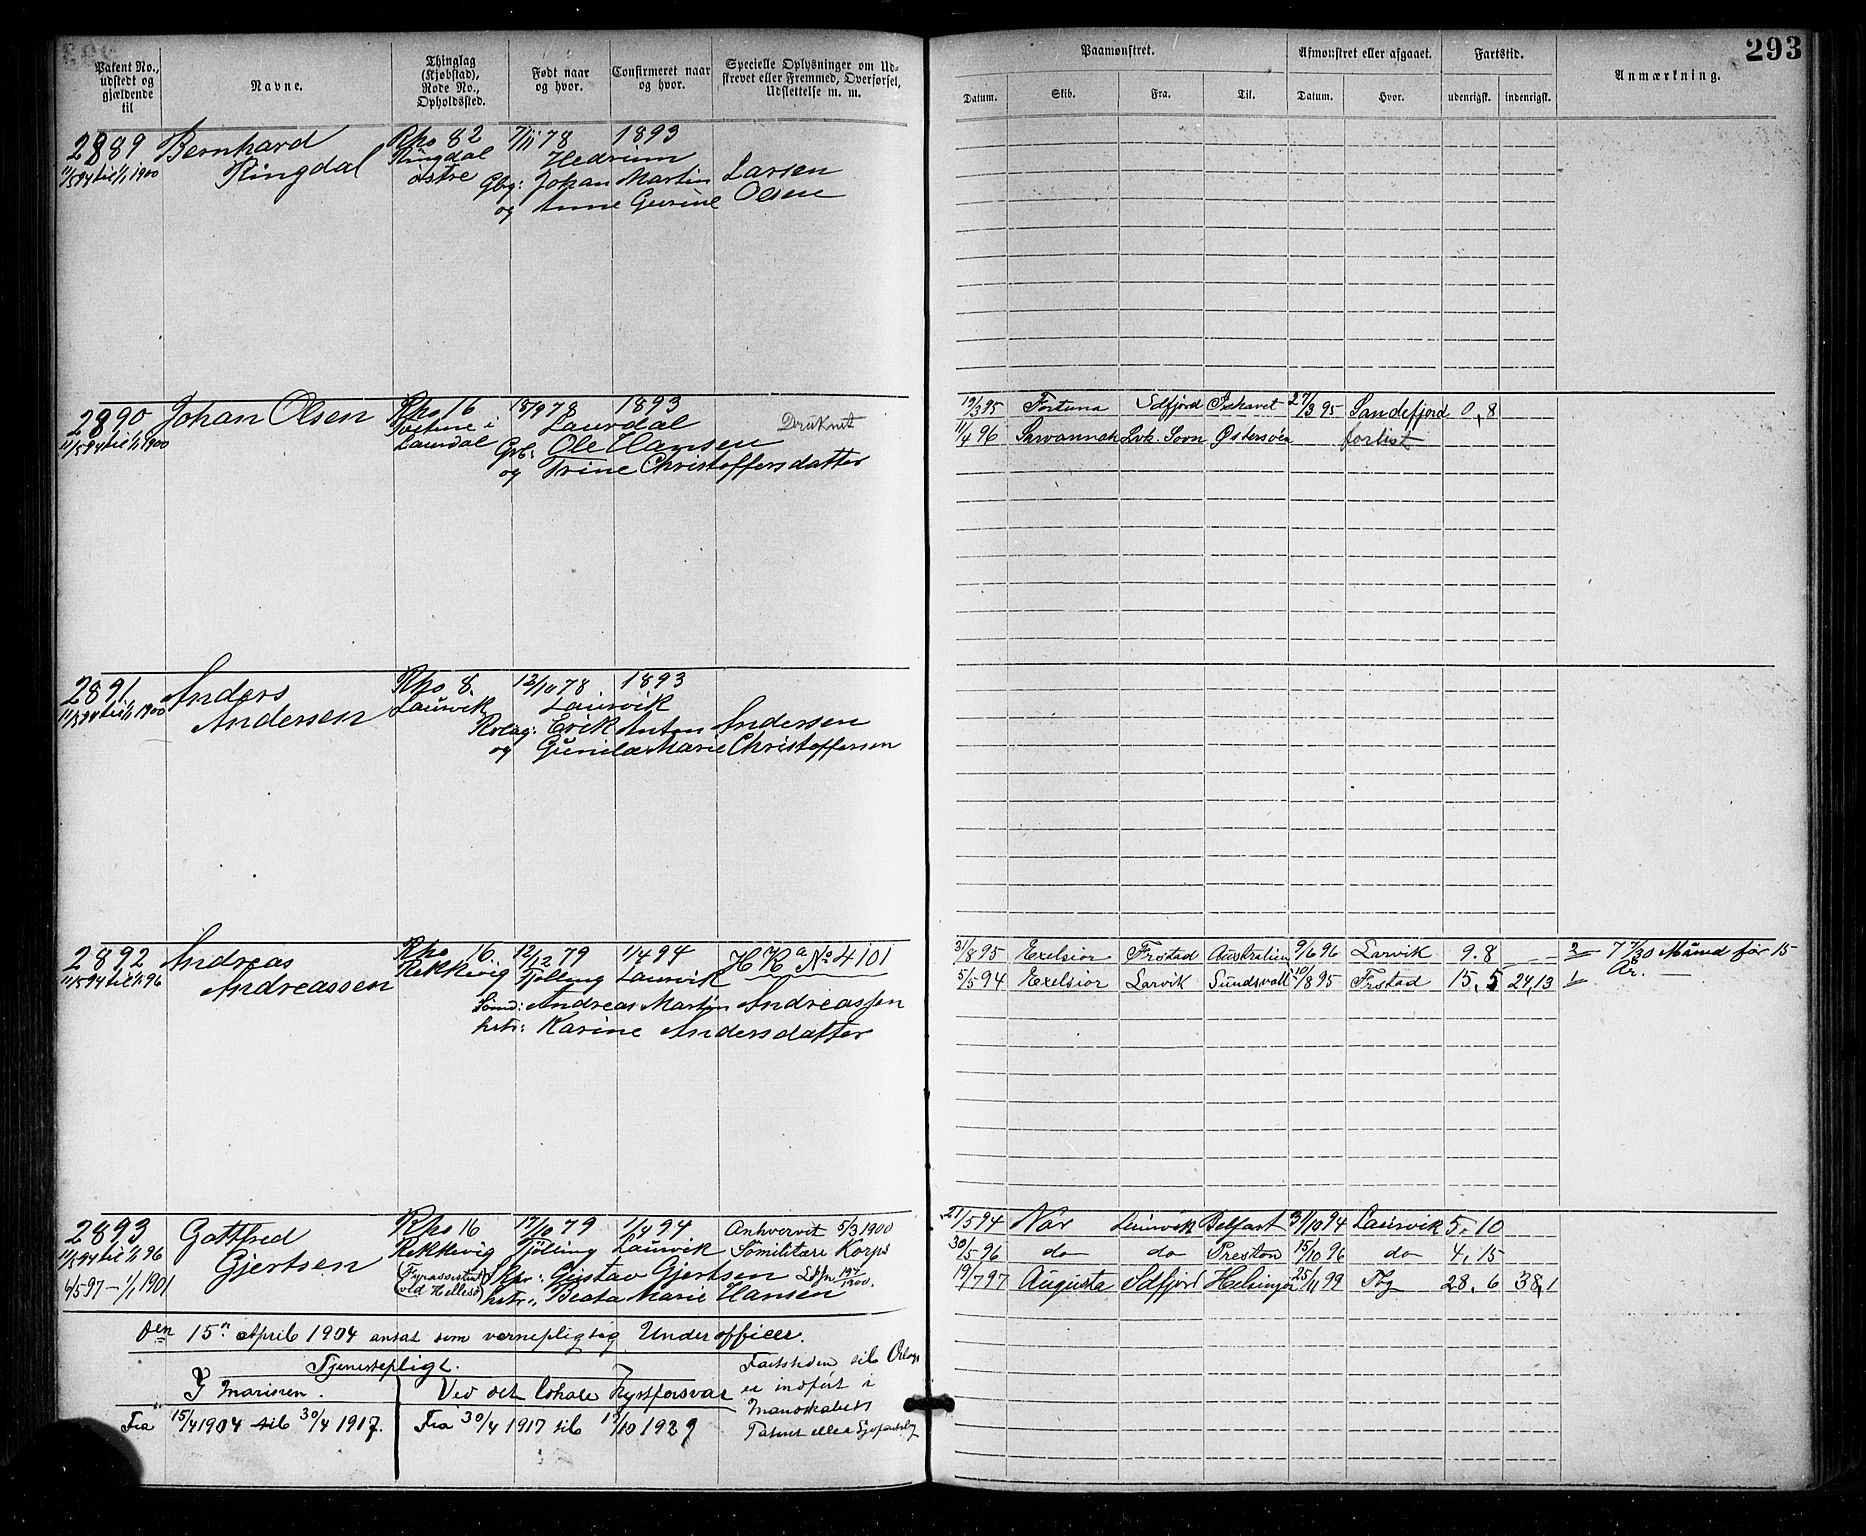 293
Patent No., udstedt og gjældende til
Navne.
Thinglag (Kjøbstad), Rode No., Opholdssted.
Født naar og hvor.
Confirmeret naar og hvor.
Specielle Oplysninger om Udskrevet eller Fremmed, Overførsel, Udslettelse m. m.
Paamønstret.
Afmønstret eller afgaaet.
Fartstid.
Anmærkning.
Datum. Skib. Fra. Til. Datum. Hvor. udenrigst. indenrigst.
2889 Bernhard Rko 82 7/11 78 1893
11/5 94 til 1/1 1900 Ringdal Ringdal Hedrum
østre Gbg: Johan Martin Larsen
og Anne Gurine Olsen
2890 Johan Olsen Rko 16 18/9 78 1893 Druknet
11/5 94 til 1/1 1900 i Laurdal
Laurdal Gbr: Ole Hansen
og Trine Christoffersdatter
19/3 95 Fortuna Sdfjord Ishavet 27/3 95 Sandefjord 0,8
11/4 96 Savannah Lvk. Sovn Østersøen forlist
2891 Anders Rko 8. 12/10 78 1893
11/5 94 til 1/1 1900 Andersen Laurvik Laurvik
Rolag: Erik Anton Andersen
og Gunila Marie Christoffersen
2892 Andreas Rko 16. 12/12 79 1/4 94 H Ka No 4101
11/5 94 til 1/1 96 Andreassen Rekkevig Tjølling Laurvik
Sømd: Andreas Martin Andreassen
hstr: Karine Andersdatter
31/8 95 Exelsior Frstad Australien 9/6 96 Larvik 9.8 2 7 7/30 Maaned før 15
5/5 94 Exelsior Larvik Sundsvall 10/8 95 Frstad 15,5 24,13 1 År.
2893 Gottfred Rko 16 17/10 79 1/4 94 Anhvervet 5/3 1900
11/5 94 til 1/1 96 Gjertsen Rekkevig Tjølling Laurvik Sömilitære Korps
6/5 97 - 1/1 1901 (Fyrassistent ved Hellesø) Skpr: Gustav Gjertsen
hstr: Beata Marie Hansen
21/5 94 Nor Laurvik Belfast 31/10 94 Laurvik 5,10
30/5 96 do do Preston 15/10 96 do 4,15
19/7 97 Augusta Sdfjord Helsingør 25/11 99 Tbg 28,6 38,1
Den 15n April 1904 ansat som vernepligtig Underofficer.
Tjenestepligt.
I marinen. Ved det lokale Kystforsvar
Fra 15/4 1904 til 30/4 1917. Fra 30/4 1917 til 17/10 1929
Fartstiden til Orlogs
er indført i
Mandskabets
Patent eller Sjøfartsbog